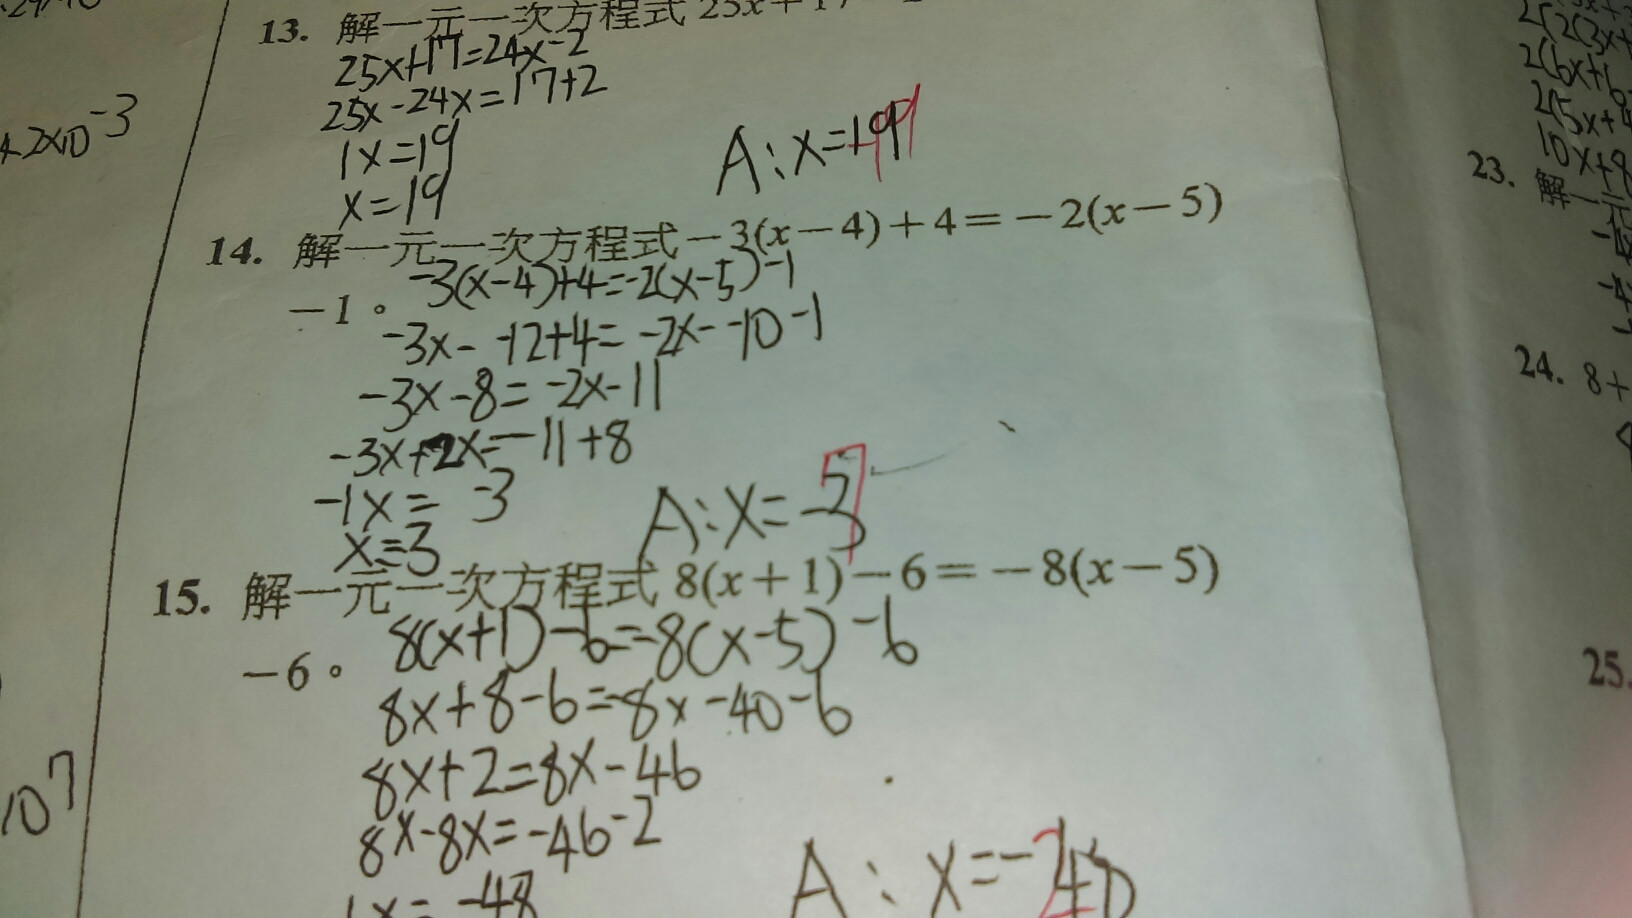 +2x10^-3
10^7
13. 解一元一次方程式 25x+17
25x+17=24x-2
25x-24x=17+2
1x=19
x=19
A:x=19
14. 解一元一次方程式-3(x-4)+4=-2(x-5)
-1。
-3(x-4)+4=-2(x-5)-1
-3x--12+4=-2x--10-1
-3x-8=-2x-11
-3x+2x=-11+8
-1x= -3
x=3
A:x=
15. 解一元一次方程式 8(x+1)-6=-8(x-5)
-6。
8(x+1)-6=-8(x-5)-6
8x+8-6=-8x-40-6
8x+2=8x-46
8x-8x=-46-2
1x=-48
A:x=-
23. 解一元
24. 8+
25.